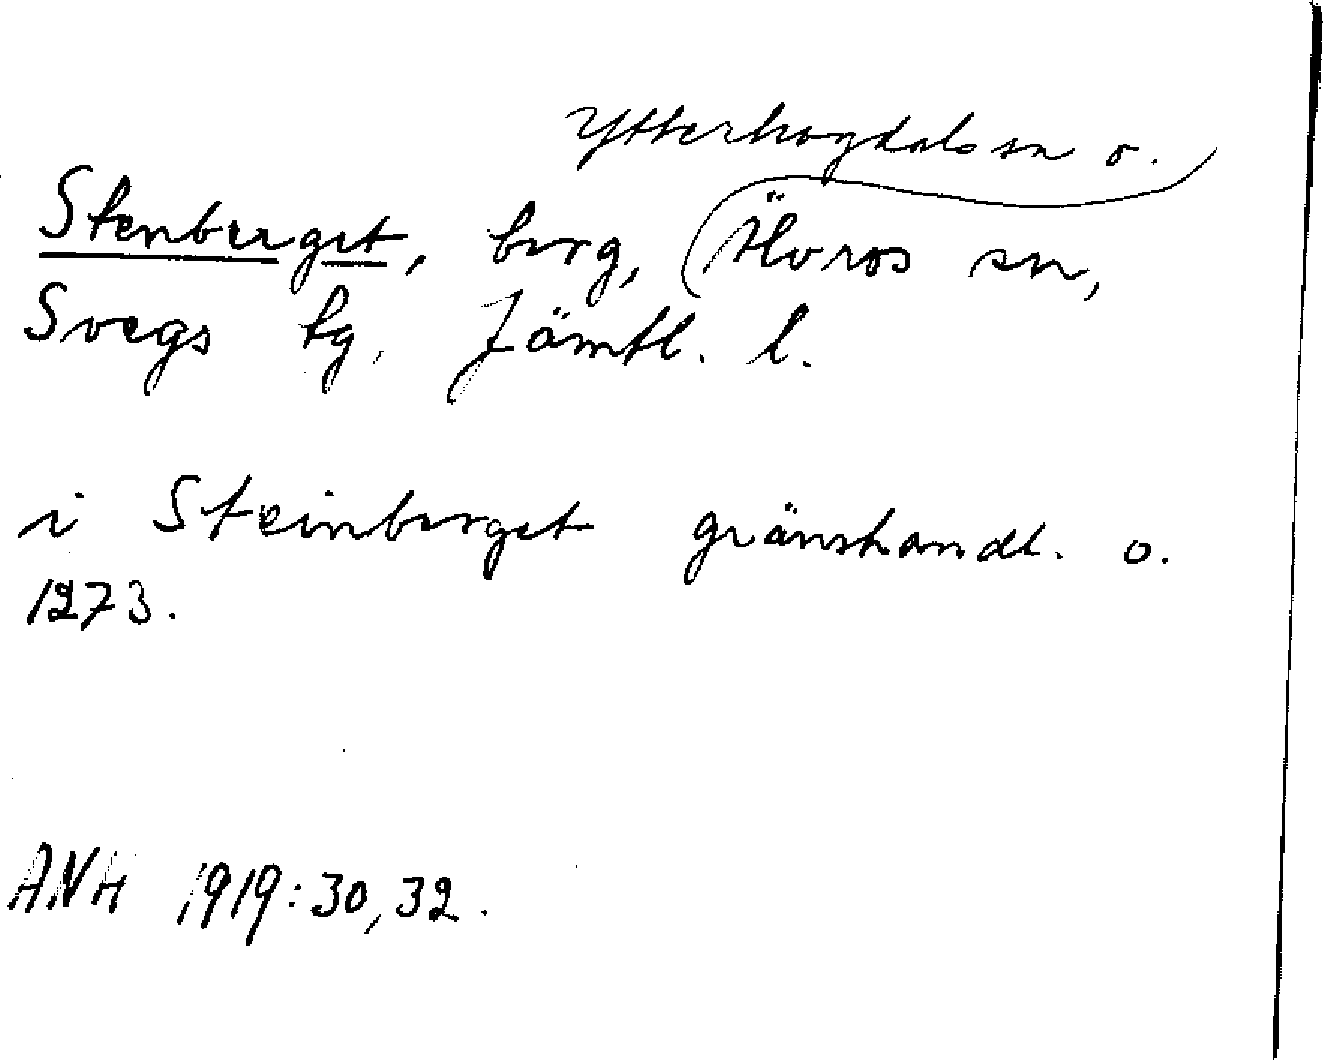 Ytterhogdals sn o.
Stenberget, berg, Älvros sn,
Svegs tg, Jämtl. l.
i Steinberget gränshandl. o.
1273.
ANH 1919:30,32.